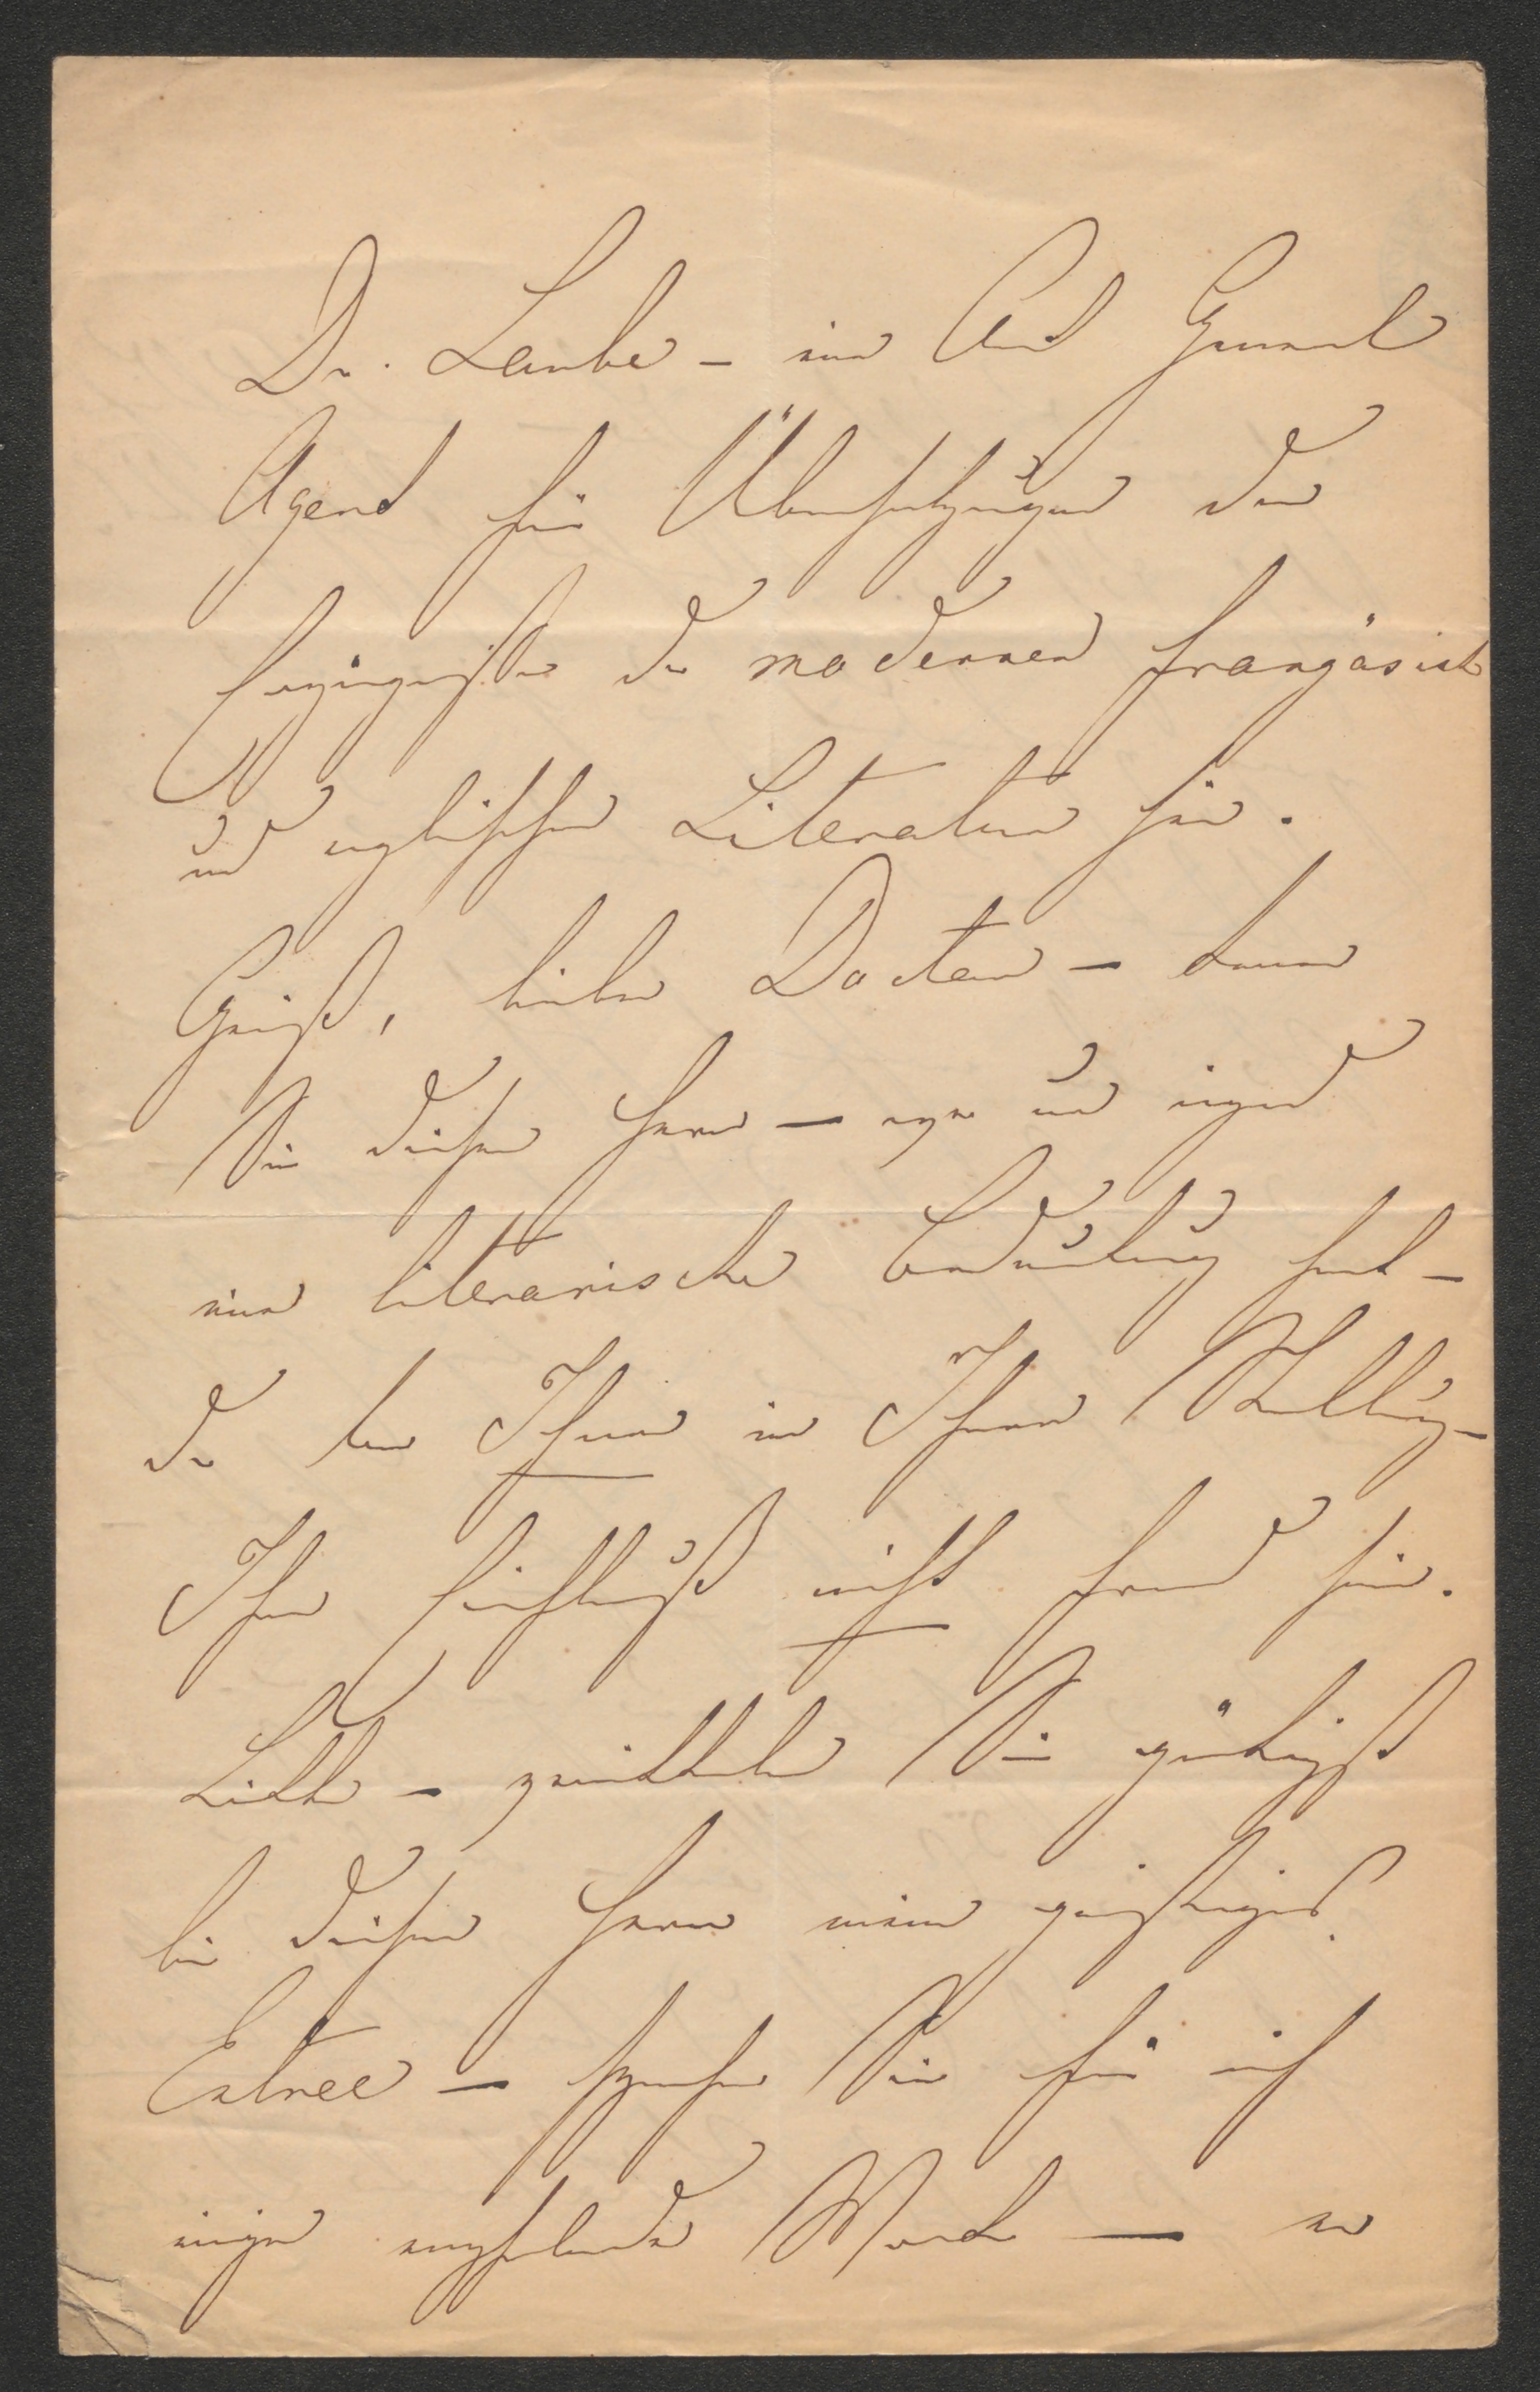 Dr. Laube – eine Art General
Agend für Übersetzungen der
Erzeugnisse der modernen französisch
und englischen Literatur sein.
Gewiß, lieber Doctor – kennen
Sie diesen Herrn – egen und irgend
eine literarische Bedeutung hat –
der kan Ihnen in Ihrer Stellung –
Ihrem Einfluß nicht fremd sein.
Bitte – vermitteln Sie gütigst
bei diesem Herrn mein geistiges
Entree – sprechen Sie für mich
einige empfehlende Worte – er